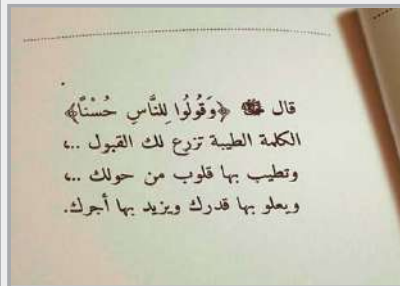 قال ﴿وَقُولُوا لِلنَّاسِ حُسْنًا﴾
الكلمة الطيبة تزرع لك القبول ..،
وتطيب بها قلوب من حولك ..،
ويعلو بها قدرك ويزيد بها أجرك.